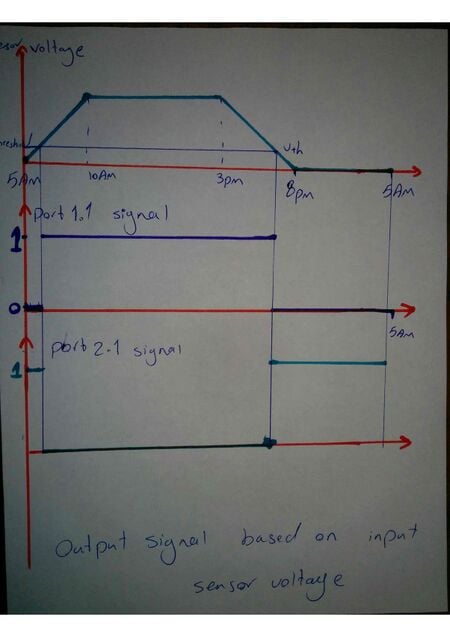 sensor voltage
threshold
Vth
5AM 10AM 3pm 8pm 5AM
port 1.1 signal
1
0
5AM
port 2.1 signal
1
Output signal based on input
sensor voltage